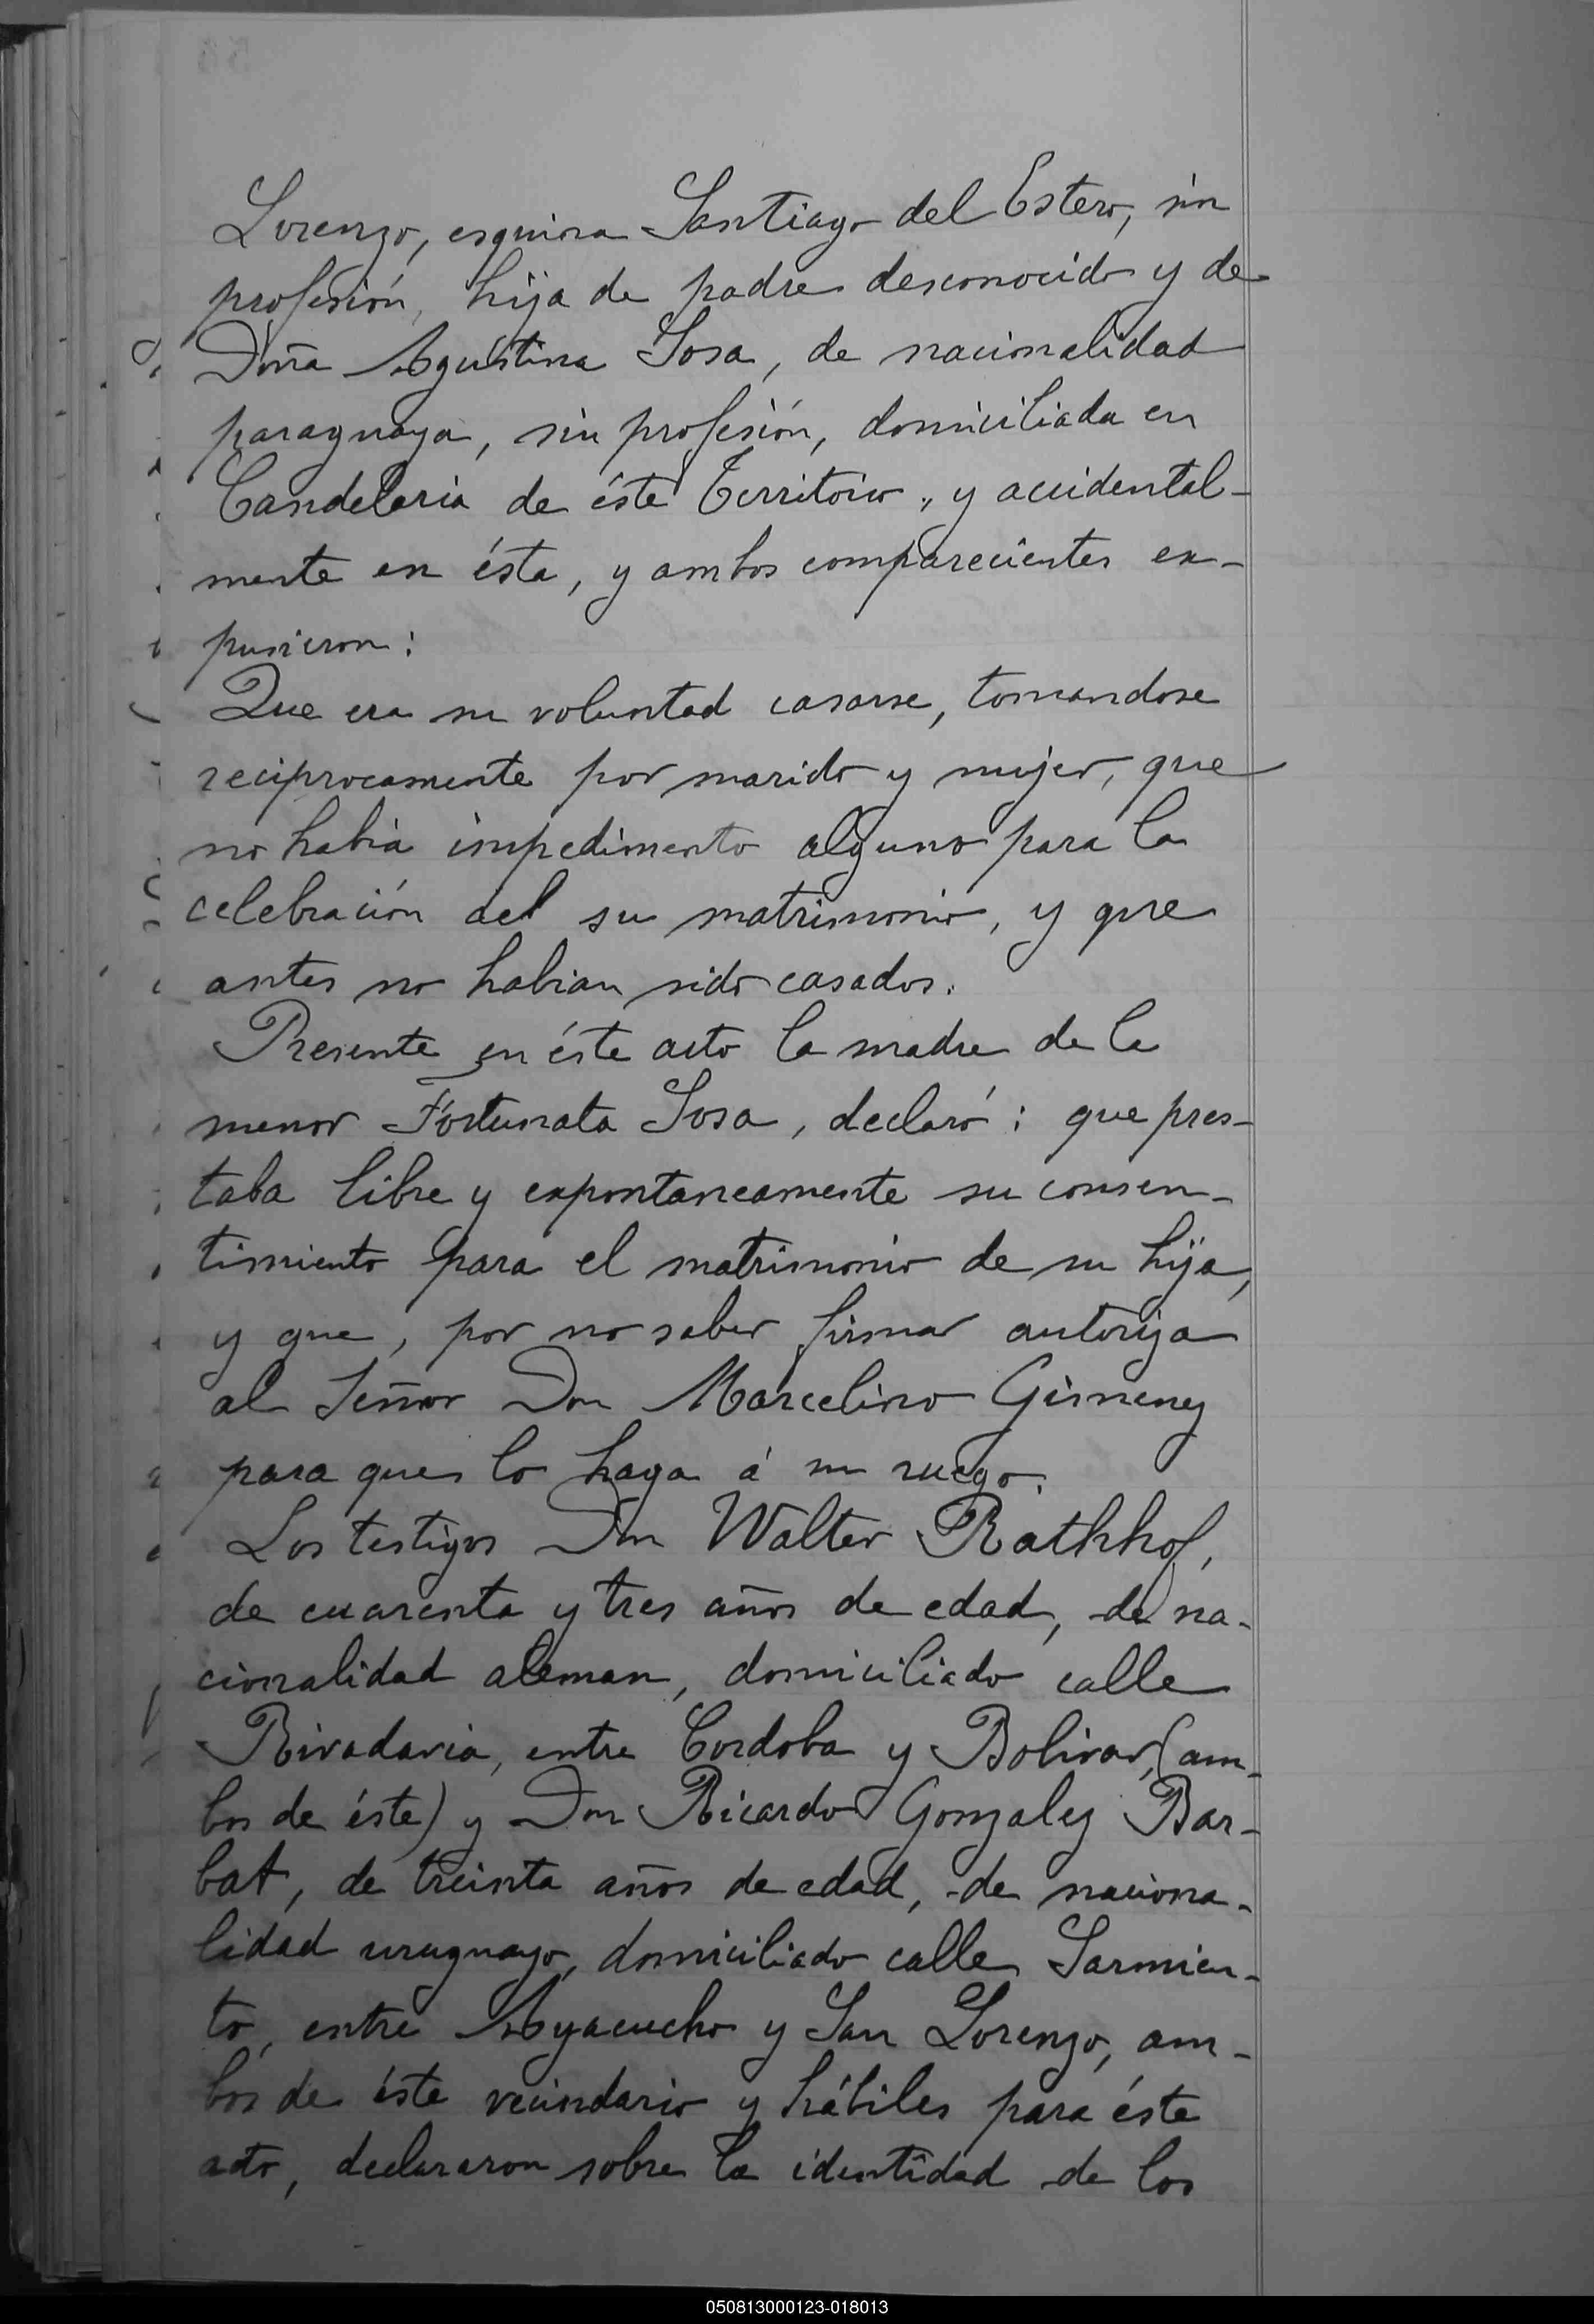 Lorenzo, esquina Santiago del Estero, sin
profesión, hija de padre desconocido y de
Doña Agustina Sosa, de nacionalidad
paraguaya, sin profesión, domiciliada en
Candelaria de éste Territorio, y accidental-
mente en ésta, y ambos comparecientes ex-
pusieron:
Que era su voluntad casarse, tomandose
reciprocamente por marido y mujer, que
no habia impedimento alguno para la
celebración del su matrimonio, y que
antes no habian sido casados.
Presente en éste acto la madre de la
menor Fortunata Sosa, declaró: que pres-
taba libre y expontaneamente su consen-
timiento para el matrimonio de su hija,
y que, por no saber firmar autoriza
al Señor Don Marcelino Gimenez
para que lo haga á su ruego.
Los testigos Don Walter Rathhof,
de cuarenta y tres años de edad, de na-
cionalidad aleman, domiciliado calle
Rivadavia, entre Cordoba y Bolivar, (am-
bos de éste) y Don Ricardo Gonzalez Bar-
bat, de treinta años de edad, de naciona-
lidad uruguayo, domiciliado calle Sarmien-
to, entre Ayacucho y San Lorenzo, am-
bos de éste vecindario y hábiles para éste
acto, declararon sobre la identidad de los
050813000123-018013